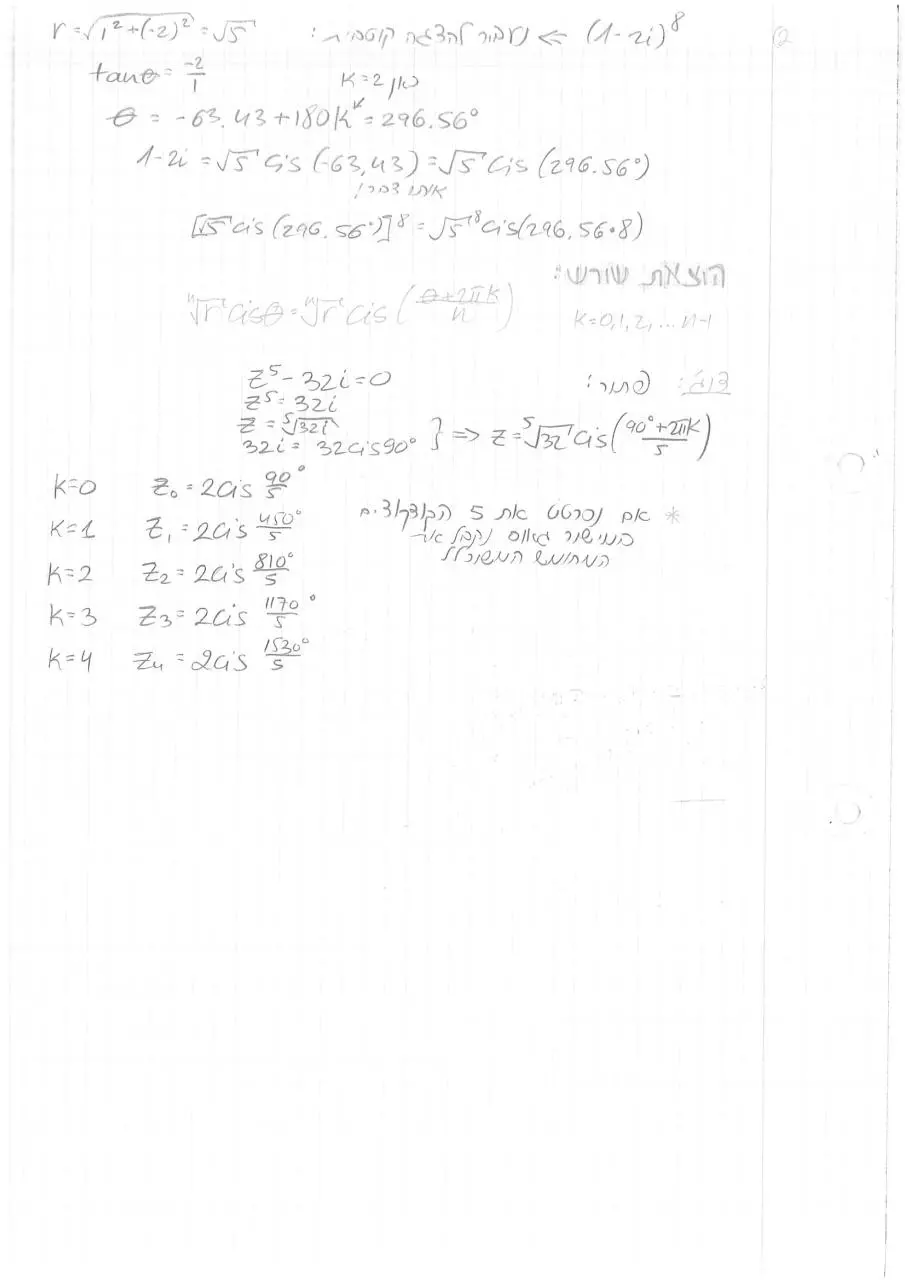 ②
(1-2i)⁸ ⇒ נעבור להצגה קוטבית: r = √(1²+(-2)²) = √5
tanθ = -2/1
כאן K=2
θ = -63.43+180K = 296.56°
1-2i = √5 cis (-63,43) = √5 cis (296.56°)
אותו דבר!
[√5 cis (296.56°)]⁸ = √5⁸ cis(296.56•8)
הוצאת שורש:
ⁿ√r cisθ = ⁿ√r cis ((θ+2πK)/n) K=0,1,2,...n-1
דוג': פתור: z⁵-32i=0
z⁵=32i
z = ⁵√32i
32i = 32cis90° } ⇒ z = ⁵√32 cis((90°+2πK)/5)
K=0 z₀ = 2cis 90°/5
K=1 z₁ = 2cis 450°/5
K=2 z₂ = 2cis 810°/5
K=3 z₃ = 2cis 1170°/5
K=4 z₄ = 2cis 1530°/5
* אם נסרטט את 5 הקודקודים
במישור גאוס נקבל את
המחומש המשוכלל